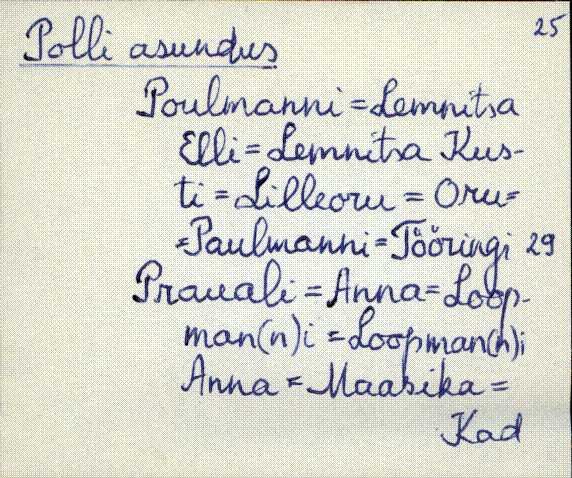 25
Polli asundus
Poulmanni = Lemnitsa
Elli = Lemnitsa Kus-
ti = Lilleoru = Oru =
= Paulmanni = Tööringi 29
Prauali = Anna = Loop-
man(n)i = Loopman(n)i
Anna = Maasika =
Kad